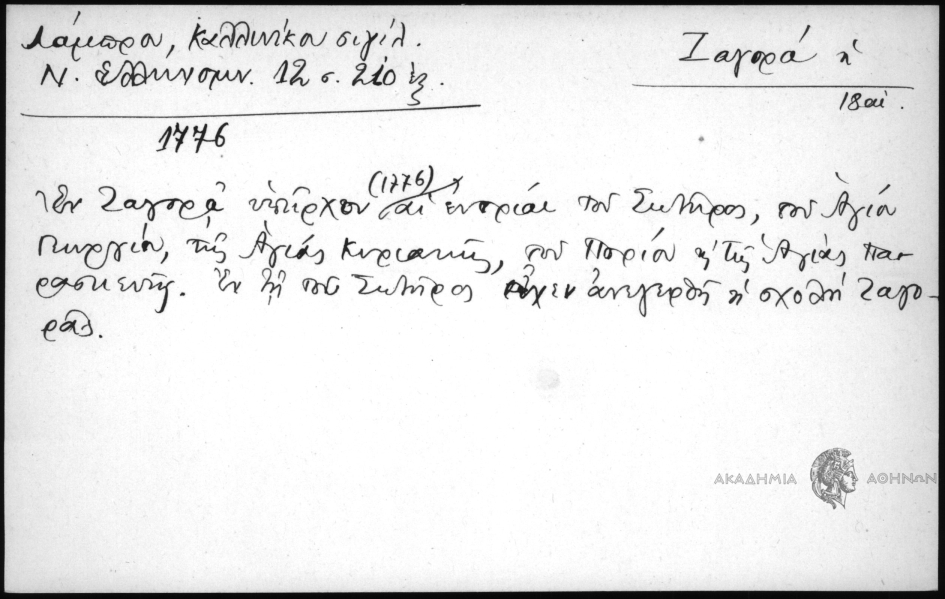 Λάμπρου, Καλλινίκου σιγίλ.
Ν. Ἑλληνομν. 12 σ. 210 ἑξ.
Ζαγορά ἡ
18 αἰ.
1776
Ἐν Ζαγορᾷ ὑπῆρχον (1776) αἱ ἐνορίαι τοῦ Σωτῆρος, τοῦ Ἁγίου
Γεωργίου, τῆς Ἁγίας Κυριακῆς, τοῦ Πορίου κ τῆς Ἁγίας Πα-
ρασκευῆς. Ἐν τῇ τοῦ Σωτῆρος εἶχεν ἀνεγερθῆ ἡ σχολή Ζαγο-
ρᾶς.
ΑΚΑΔΗΜΙΑ ΑΘΗΝΩΝ